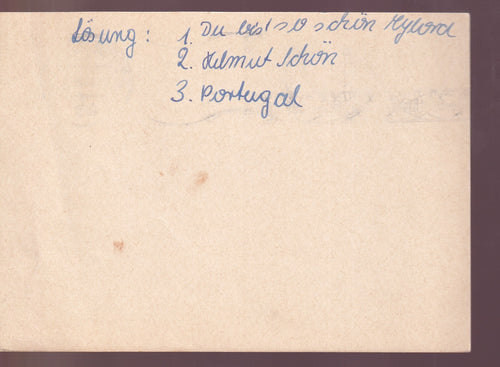 Lösung: 1. Du bist so schön Mylord
2. Helmut Schön
3. Portugal